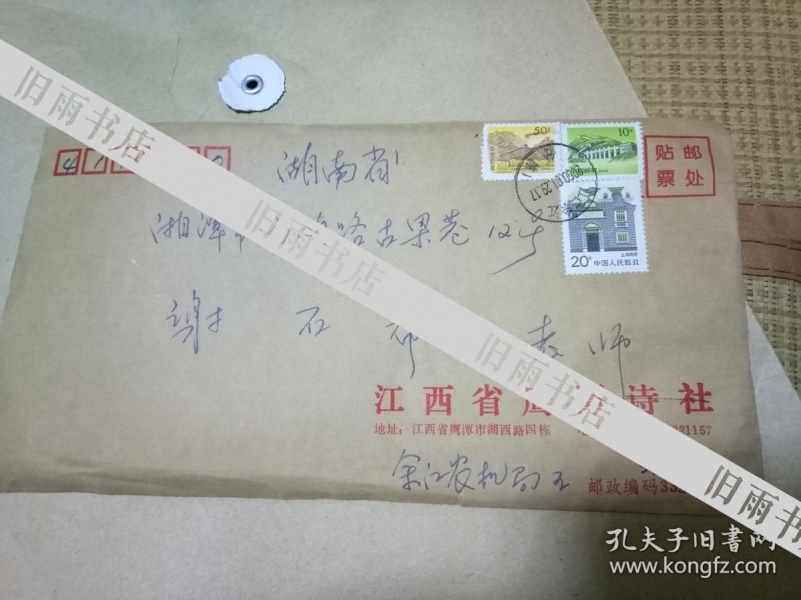 旧雨书店
50分
10分
贴邮
票处
2000.01.29.17
20分 中国人民邮政
上海民居
湖南省
湘潭市 路古果巷12号
谢石 老师
旧雨书店
江西省鹰 诗社
地址：江西省鹰潭市湖西路四栋 21157
余江农机局
邮政编码33
旧雨书店
孔夫子旧书网
www.kongfz.com